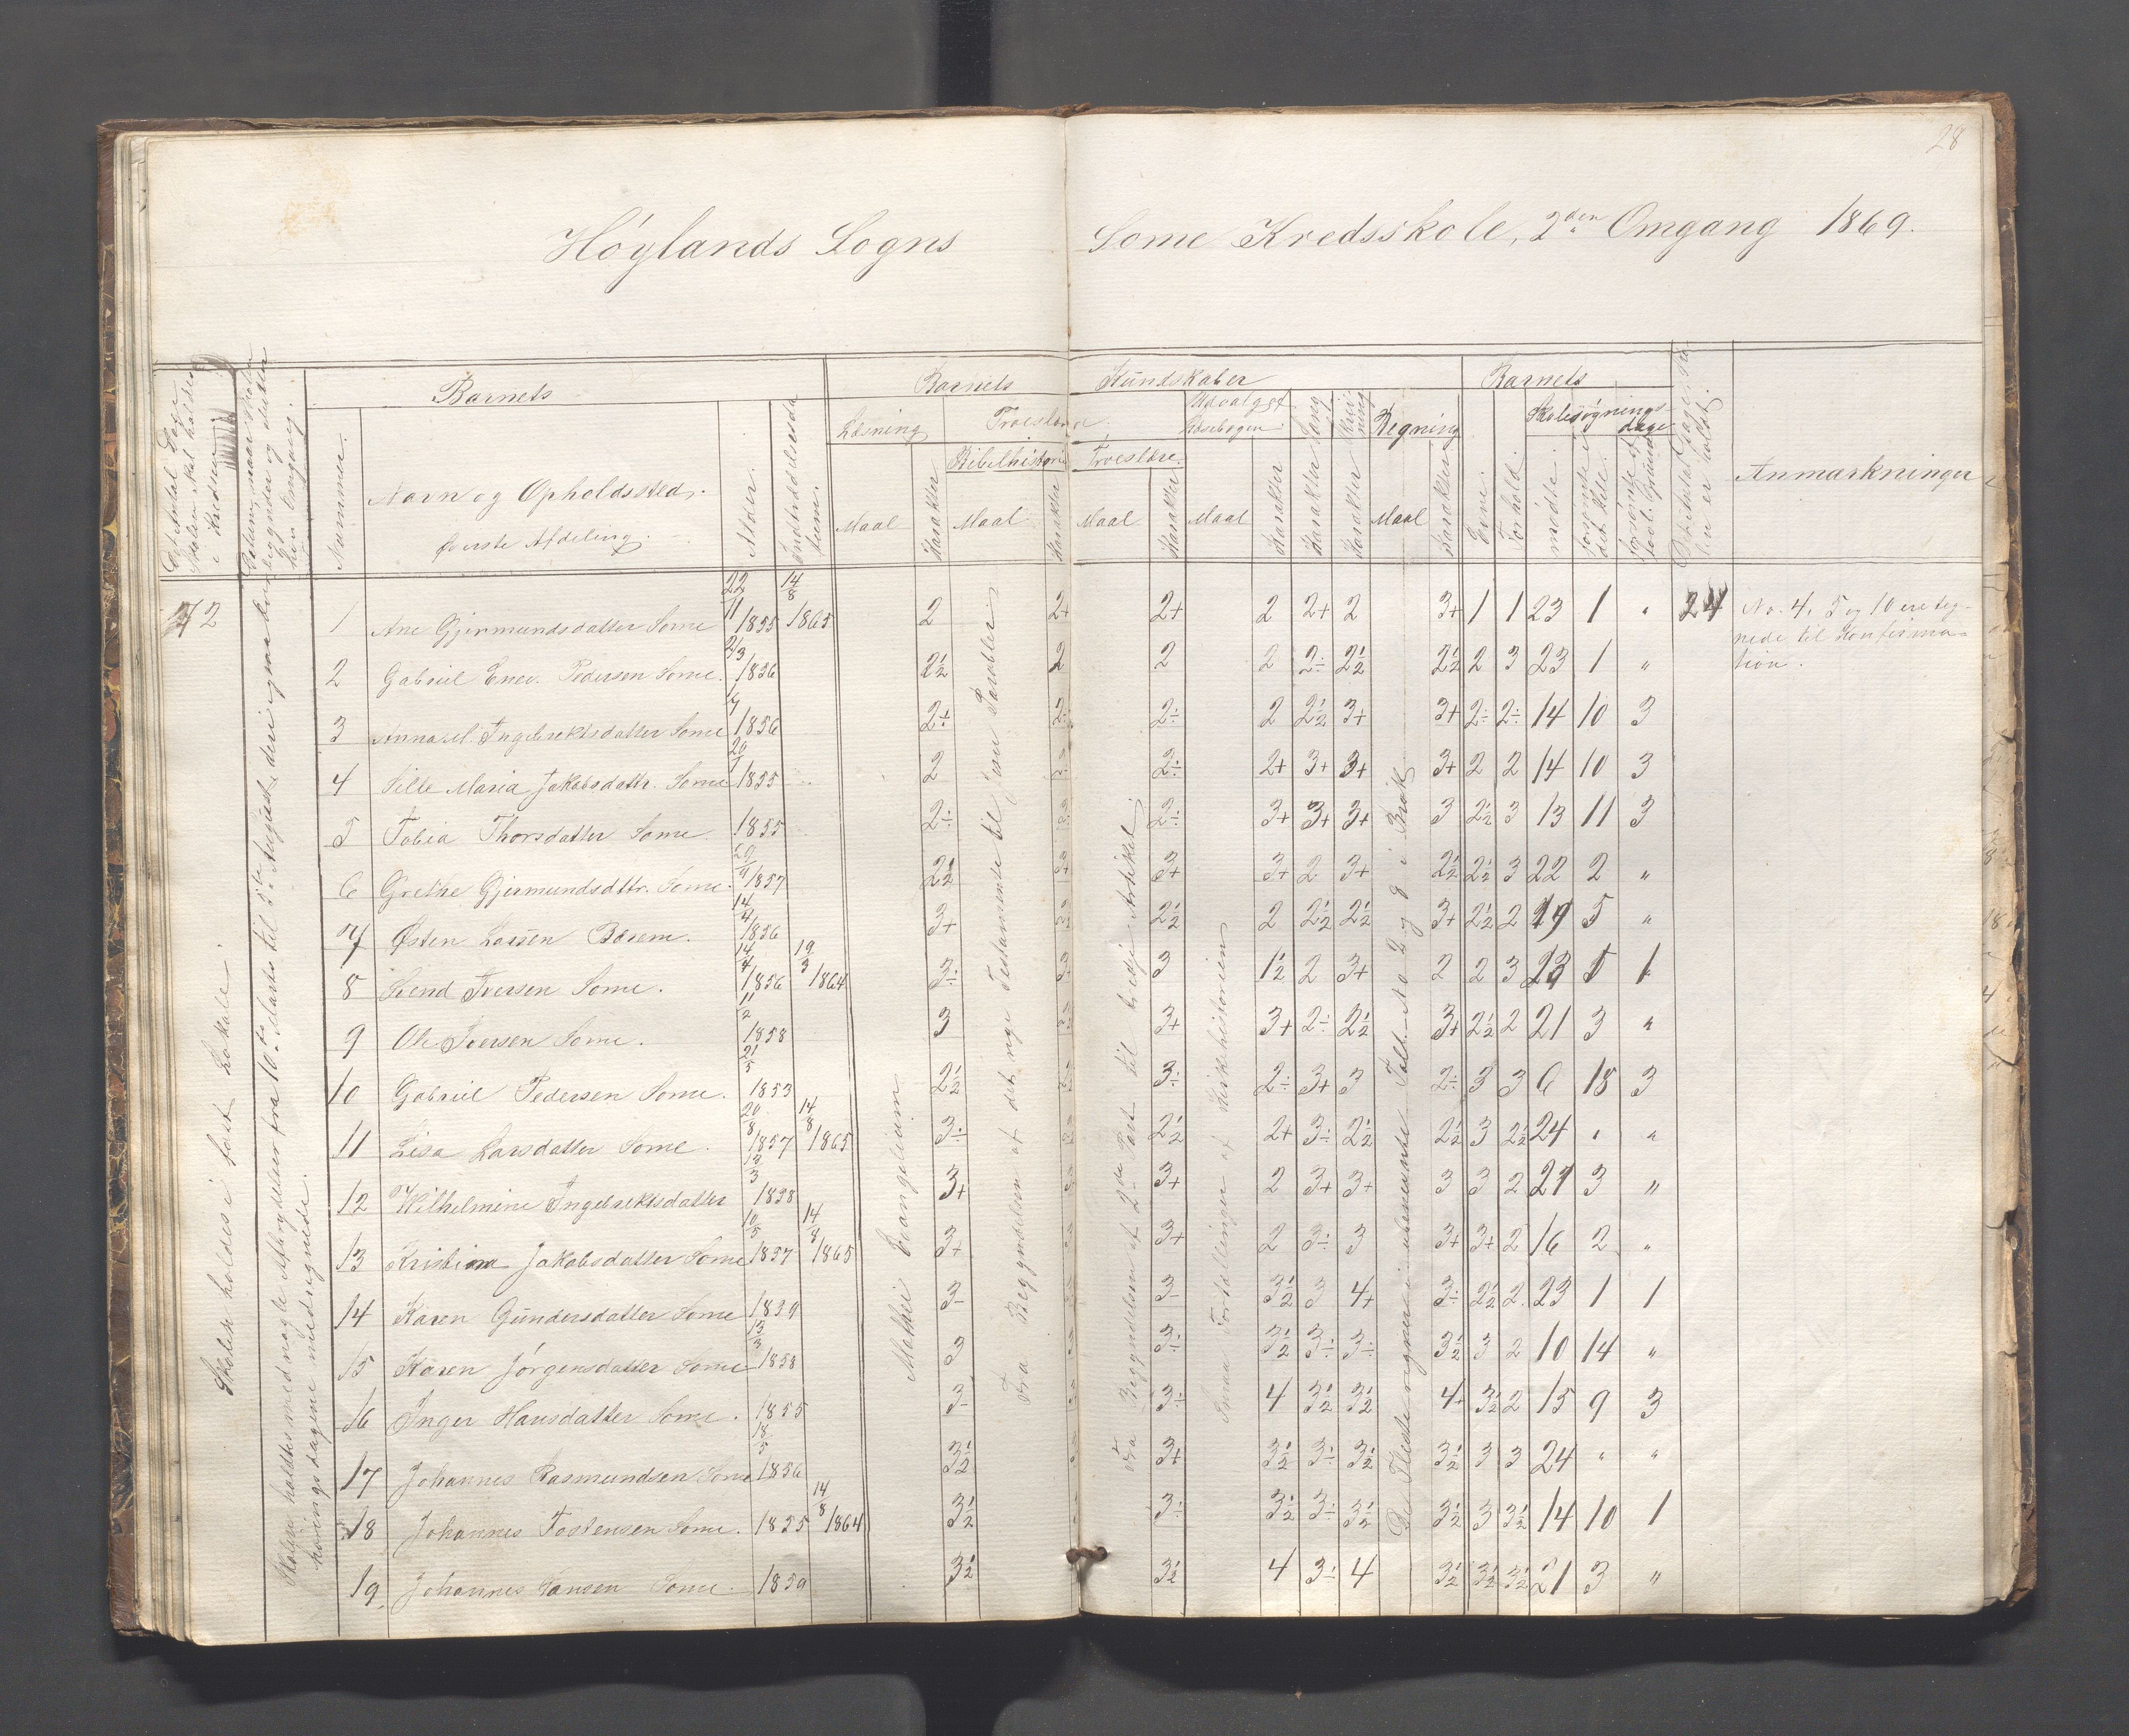 28
Høylands Sogns Some Kredsskole, 2den Omgang 1869.
Det Antal Dage Skolen skal holdes i Kredsen
Datum, naar Skolen begynder og slutter hver Omgang.
Barnets
Nummer.
Navn og Opholdssted.
Øverste Afdeling.
Alder.
Indtrædelsesdatum.
Barnets Kundskaber
Læsning
Maal
Karakter
Troeslære
Bibelhistorie
Maal
Karakter
Troeslære
Maal
Karakter
Udvalgst Læsebogen
Maal
Karakter
Sang
Karakter
Skrivning
Karakter
Regning
Maal
Karakter
Barnets
Evne.
Forhold.
Skolesøgningsdage
mødte.
forsømte i det Hele.
forsømte af lovl. Grund
Det Antal Dage Skolen er holdt.
Anmærkninger
72
Skolen holdes i fast Lokale.
Skolen holdtes med nogle Afbrydelser fra 10de Marts til 5te August, deri ogsaa
Mathei Evangelium
Fra Begyndelsen af det nye Testamente til Jesu Parabler
Fra Begyndelsen af 2den Part til tredje Artikel.
Smaa Fortællinger af Kirkehistorien
De Fleste regnere i ubenævnte Tal No 2 og 9 i Brøk
1 Ane Gjermundsdatter Some 22/11 1855 14/8 1865 2 2+ 2+ 2 2+ 2 3+ 1 1 23 1 " 24 No. 4, 5 og 10 ere teg-
nede til Konfirma-
tion.
2 Gabriel Enev. Pedersen Some. 2/3 1856 2½ 2 2 2 2÷ 2½ 2½ 2 3 23 1 "
3 Anna M. Ingebrektsdatter Some 1856 2÷ 2÷ 2÷ 2 2½ 3+ 3+ 2÷ 2÷ 14 10 3
4 Sille Maria Jakobsdattr. Some 1855 2 2÷ 2+ 3+ 3+ 3+ 2 2 14 10 3
5 Tobia Thorsdatter Some 1855 2÷ 2÷ 3+ 3+ 3+ 3 2½ 3 13 11 3
6 Grethe Gjermundsdttr. Some. 1857 2½ 3+ 3+ 3+ 2 3+ 2½ 2½ 3 22 2 "
7 Østen Larsen Bærem. 14/4 1856 3+ 2½ 2 2½ 2½ 3+ 2½ 2 19 5 "
8 Svend Iversen Some. 14/4 1856 19/3 1864 3÷ 3 1½ 2 3+ 2 2 3 5 1
9 Ole Iversen Some. 11/2 1858 3 3+ 3+ 2÷ 2½ 3+ 2½ 2 21 3 "
10 Gabriel Pedersen Some. 21/5 1853 2½ 3÷ 2÷ 3+ 3 2÷ 3 3 6 18 3
11 Lisa Larsdatter Some. 20/8 1857 14/8 1865 3÷ 2½ 2+ 3÷ 2½ 2½ 3 2½ 24 " "
12 Wilhelmine Ingebrektsdatter 1858 3+ 3+ 2 3+ 3+ 3 3 2 21 3 "
13 Kristina Jakobsdatter Some 10/5 1857 14/8 1865 3+ 3+ 2 3÷ 3 3+ 3+ 2 16 2 "
14 Karen Gundersdatter Some 1859 3- 3- 3½ 3 4+ 3÷ 2½ 2 23 1 1
15 Karen Jørgensdatter Some 13/3 1858 3 3÷ 3½ 3÷ 3÷ 3½ 3 2 10 14 "
16 Inger Hansdatter Some. 1855 3- 3÷ 4 3½ 3½ 4+ 3½ 2 15 9 3
17 Johannes Rasmundsen Some 1856 3½ 3+ 3½ 3÷ 3½ 3½ 3 3 24 " "
18 Johannes Tostensen Some. 1855 14/8 1864 3½ 3÷ 3½ 3÷ 3½ 3½ 3 3½ 14 10 1
19 Johannes Hansen Some. 1859 3½ 3½ 4 3÷ 4 3½ 3½ 3½ 21 3 "